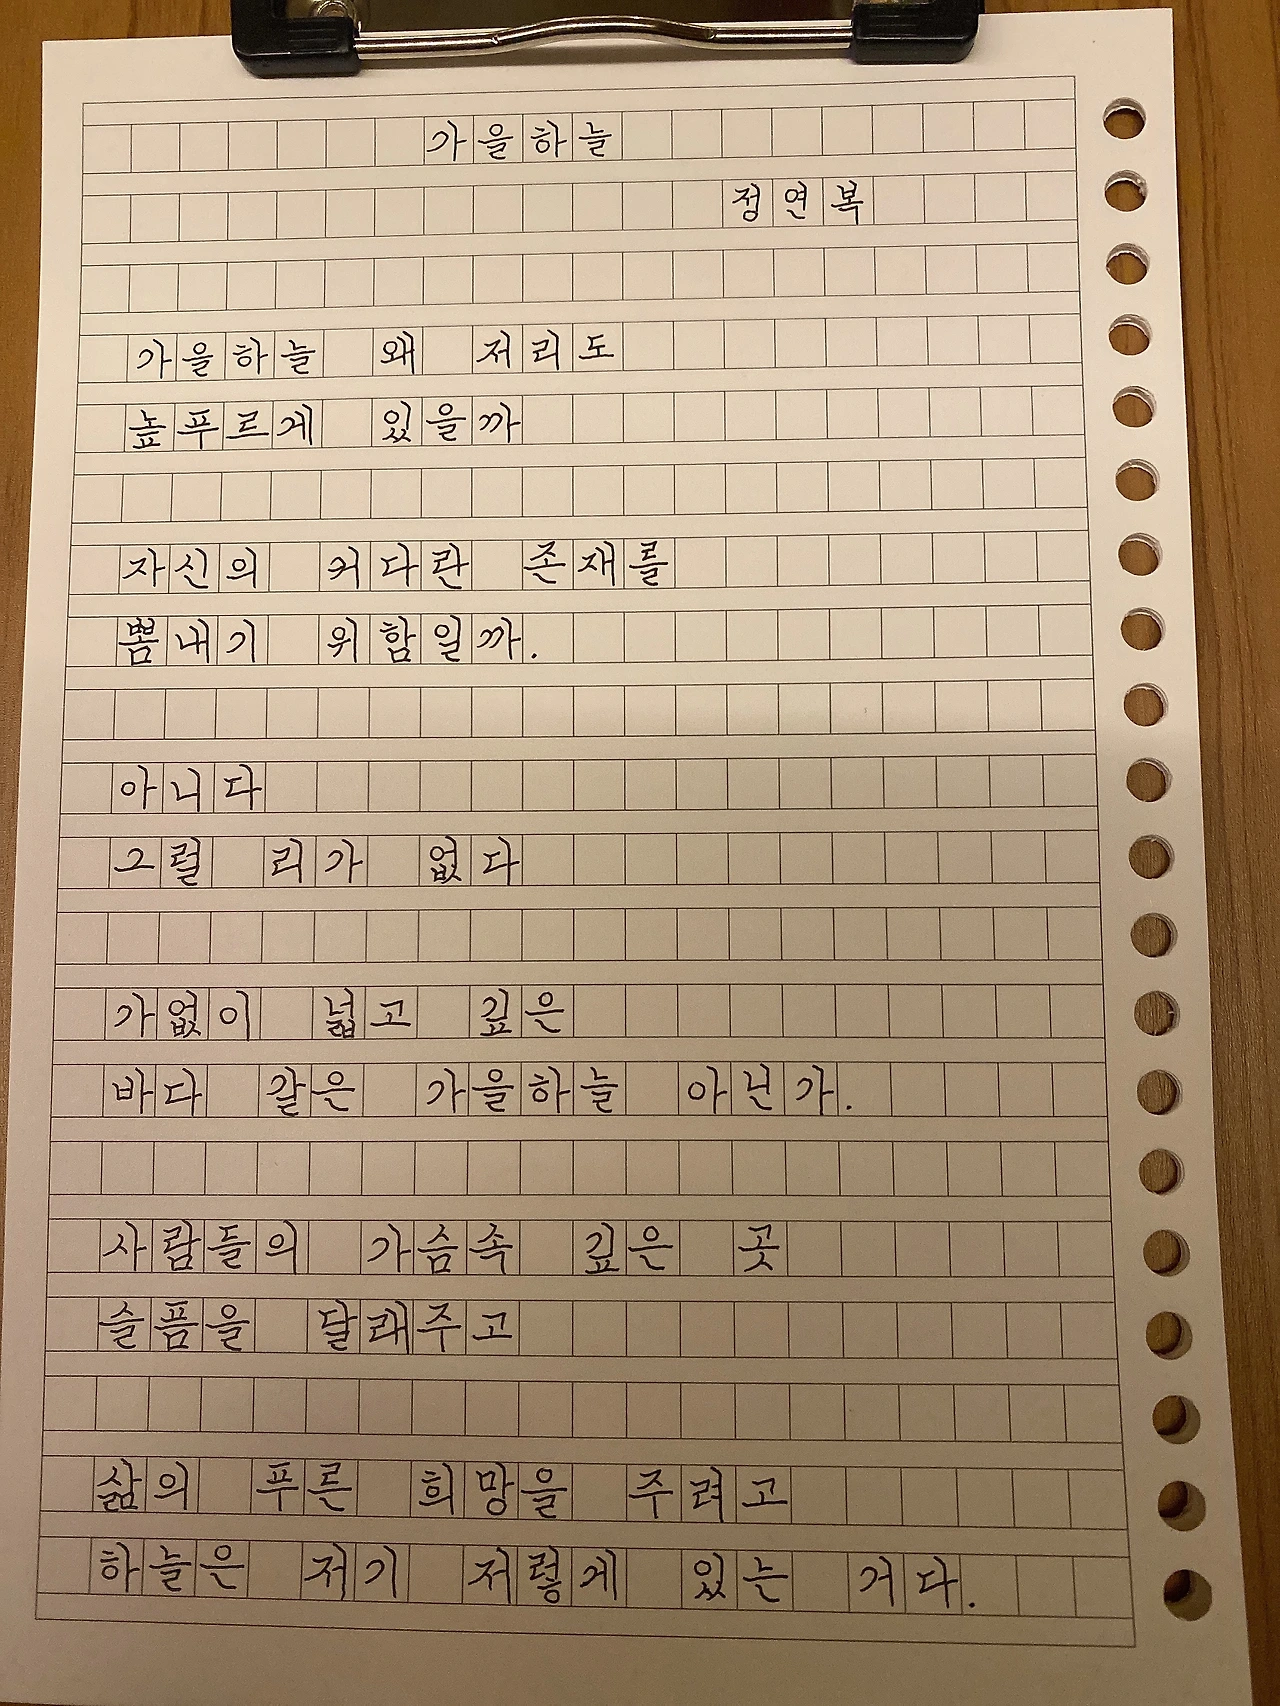 가을하늘
정연복
가을하늘 왜 저리도
높푸르게 있을까
자신의 커다란 존재를
뽐내기 위함일까.
아니다
그럴 리가 없다
가없이 넓고 깊은
바다 같은 가을하늘 아닌가.
사람들의 가슴속 깊은 곳
슬픔을 달래주고
삶의 푸른 희망을 주려고
하늘은 저기 저렇게 있는 거다.